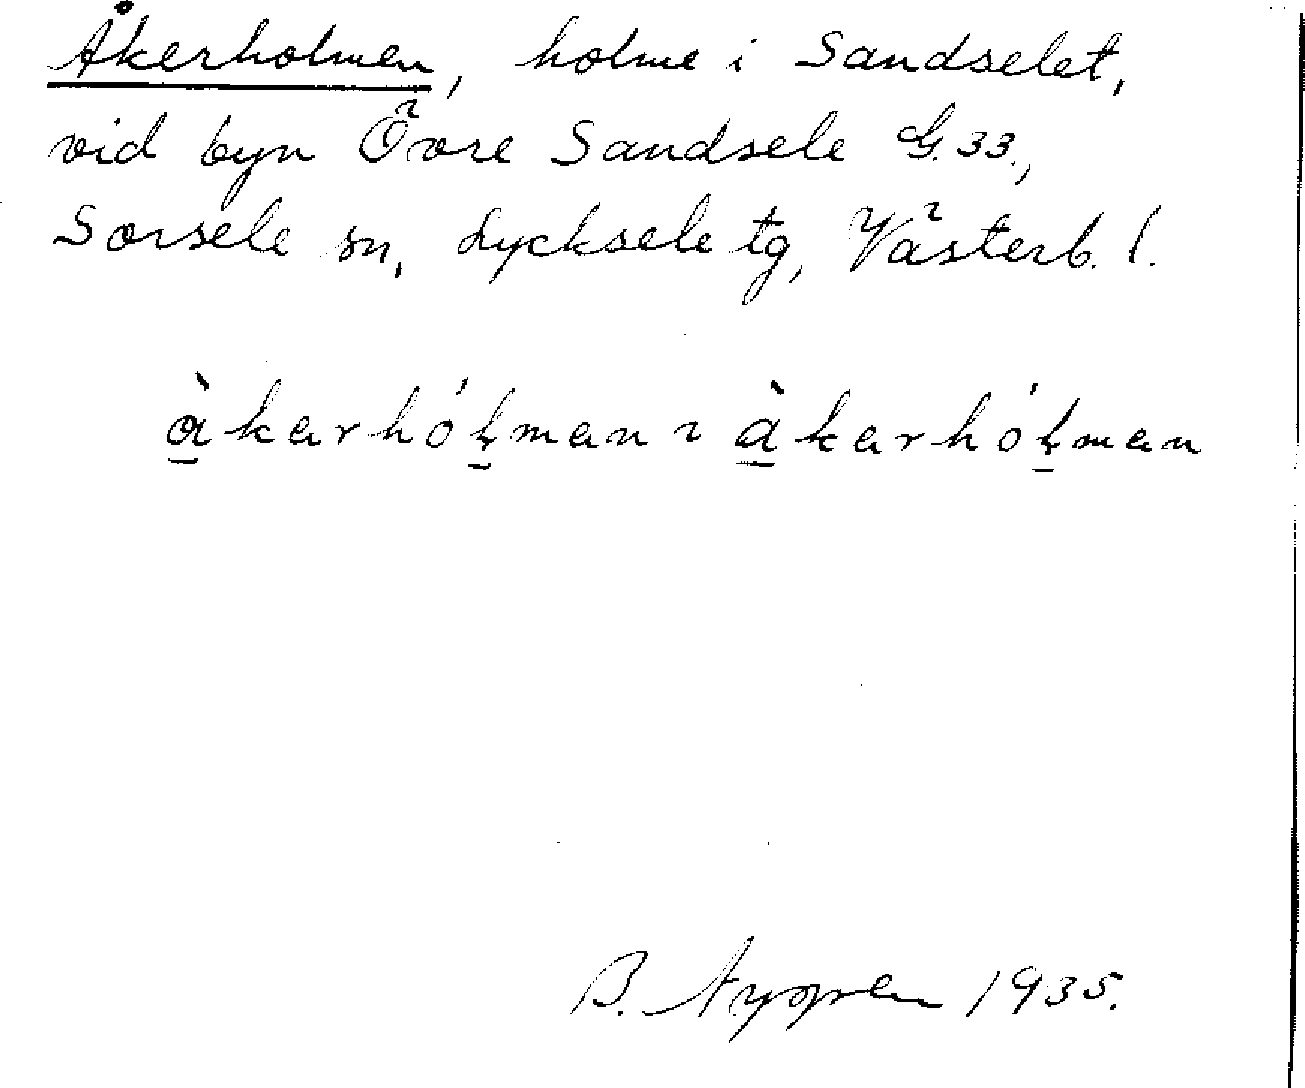 Åkerholmen, holme i Sandselet,
vid byn Övre Sandsele G. 33.,
Sorsele sn, Lycksele tg, Västerb. l.
àkerhóļmen ~ àkerhóļmen
B. 1935.